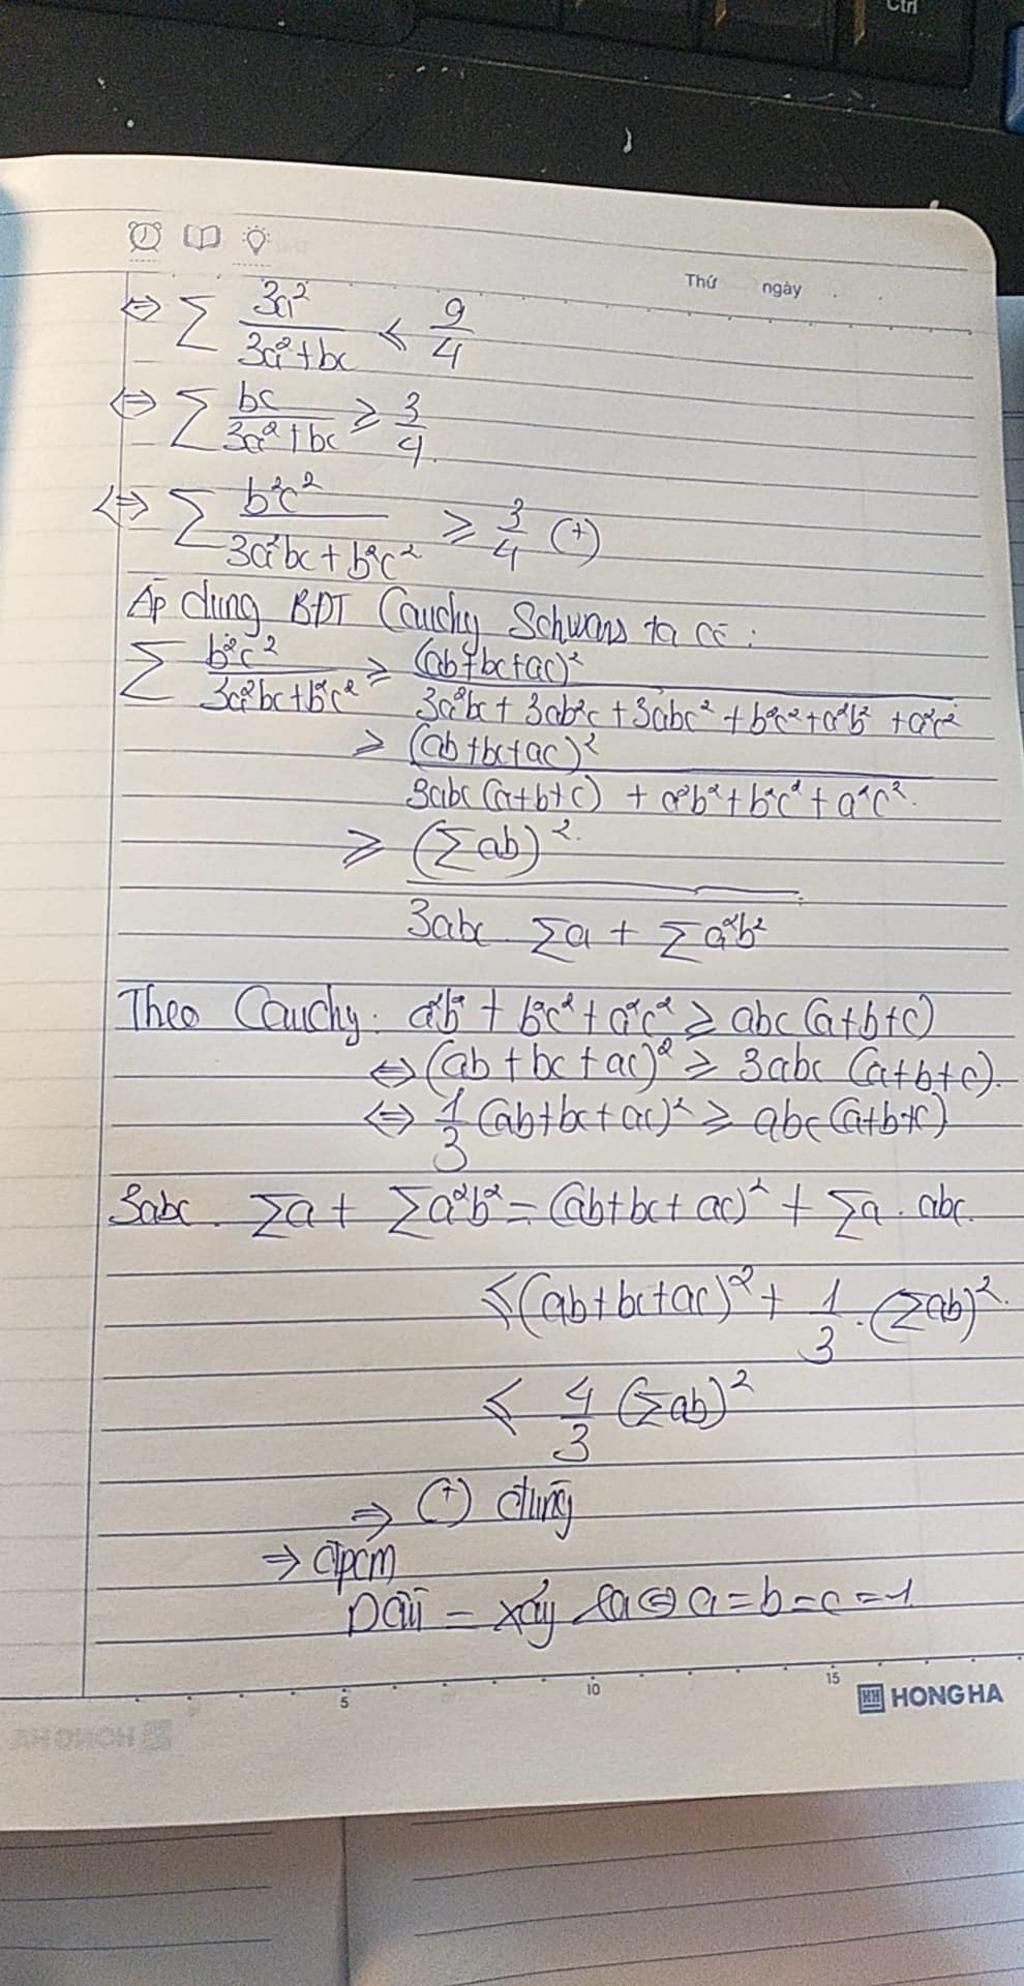 Ctrl
Thứ ngày
⇔ ∑ 3a²/(3a²+bc) ≤ 9/4
⇔ ∑ bc/(3a²+bc) ≥ 3/4.
⇔ ∑ b²c²/(3a²bc + b²c²) ≥ 3/4 (+)
Áp dụng BĐT Cauchy Schwars ta có :
∑ b²c²/(3a²bc+b²c²) ≥ (ab+bc+ac)²/(3a²bc + 3ab²c + 3abc² + b²c² + a²b² + a²c²)
≥ (ab+bc+ac)²/(3abc(a+b+c) + a²b²+b²c²+a²c².)
≥ (∑ab)²/(3abc. ∑a + ∑a²b²)
Theo Cauchy: a²b² + b²c² + a²c² ≥ abc(a+b+c)
⇔ (ab + bc + ac)² ≥ 3abc (a+b+c).
⇔ 1/3 (ab+bc+ac)² ≥ abc(a+b+c)
3abc. ∑a + ∑a²b² = (ab+bc+ac)² + ∑a . abc.
≤ (ab+bc+ac)² + 1/3 . (∑ab)².
≤ 4/3 (∑ab)²
⇒ (+) đúng
⇒ đpcm
Dấu = xảy ra ⇔ a=b=c=1
5 10 15
HONG HA